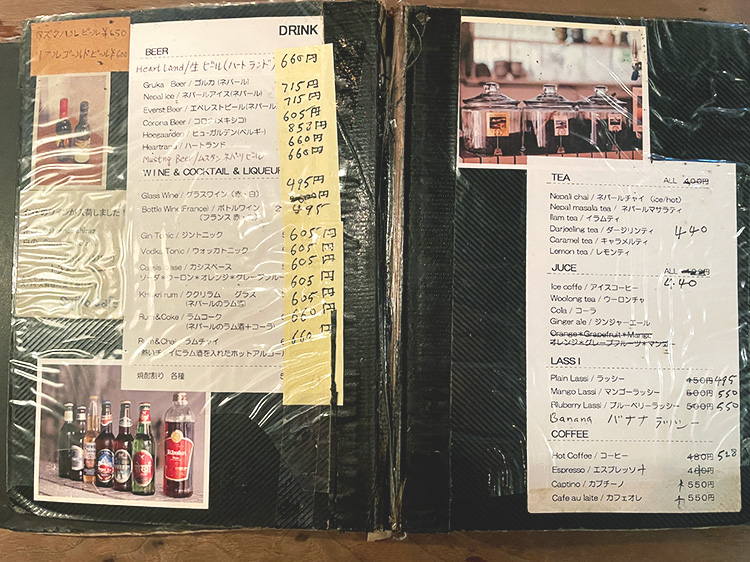 ビール ¥650
リアルゴールドビール ¥600
DRINK
BEER
Heart Land/生ビール(ハートランド) 660円
Gruka Beer / ゴルカ (ネパール) 715円
Nepal ice / ネパールアイス(ネパール) 715円
Everst Beer / エベレストビール(ネパール) 605円
Corona Beer / コロナ(メキシコ) 853円
Hoegaarden / ヒューガルデン(ベルギー) 660円
Heartrand / ハートランド 660円
Musting Beer / ムスタン ネパリビール
WINE & COCKTAIL & LIQUEUR
Glass Wine / グラスワイン (赤・白) 495円
Bottle Wine(France) / ボトルワイン
(フランス 赤
Gin Tonic / ジントニック 605円
Vodka Tonic / ウォッカトニック 605円
Cassis base / カシスベース 605円
ソーダ*ウーロン*オレンジ*グレープフルー
Khukri rum / ククリラム グラス 605円
(ネパールのラム酒)
Rum&Coke / ラムコーク 660円
(ネパールのラム酒+コーラ)
Rum&Chai / ラムチャイ 660円
熱いチャイにラム酒を入れたホットアルコール
焼酎割り 各種
ワインが入荷しました!
TEA ALL 400円
Nepali chai / ネパールチャイ (ice/hot)
Nepali masala tea / ネパールマサラティ
Ilam tea / イラムティ
Darjeeling tea / ダージリンティ 440
Caramel tea / キャラメルティ
Lemon tea / レモンティ
JUCE ALL
Ice coffe / アイスコーヒー
Woolong tea / ウーロンチャ
Cola / コーラ
Ginger ale / ジンジャーエール
Orange*Grapefruit*Mango
オレンジ*グレープフルーツ*マンゴー
LASSI
Plain Lassi / ラッシー 450円 495
Mango Lassi / マンゴーラッシー 500円 550
Rluberry Lassi / ブルーベリーラッシー 500円 550
Banana バナナ ラッシー
COFFEE
Hot Coffee / コーヒー 480円 528
Espresso / エスプレッソ 480円
Captino / カプチーノ 550円
Cafe au laite / カフェオレ 550円